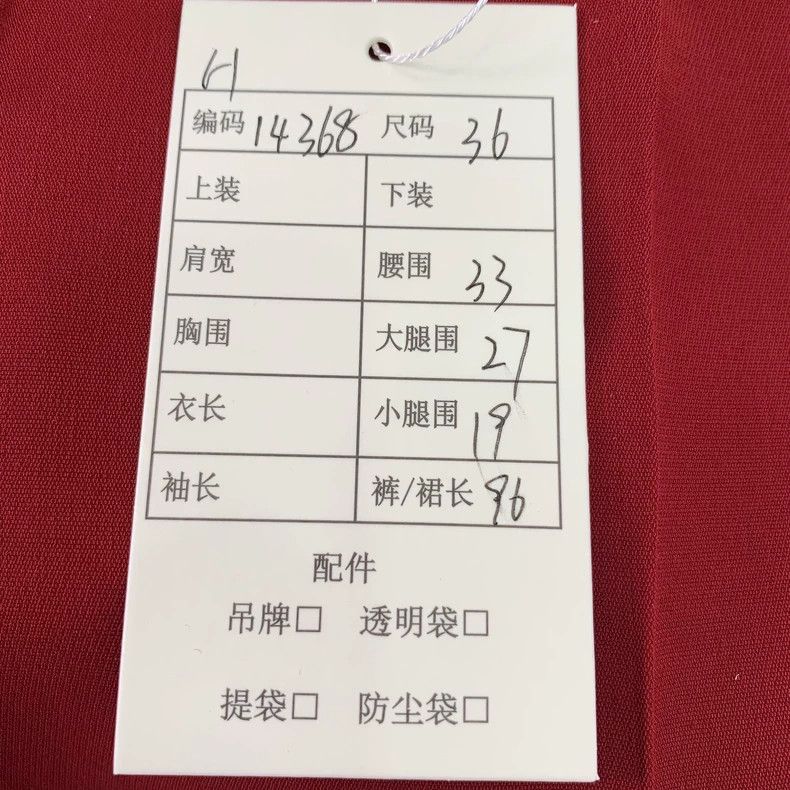 编码 14368 尺码 36
上装 下装
肩宽 腰围 33
胸围 大腿围 27
衣长 小腿围 19
袖长 裤/裙长 96
配件
吊牌□ 透明袋□
提袋□ 防尘袋□